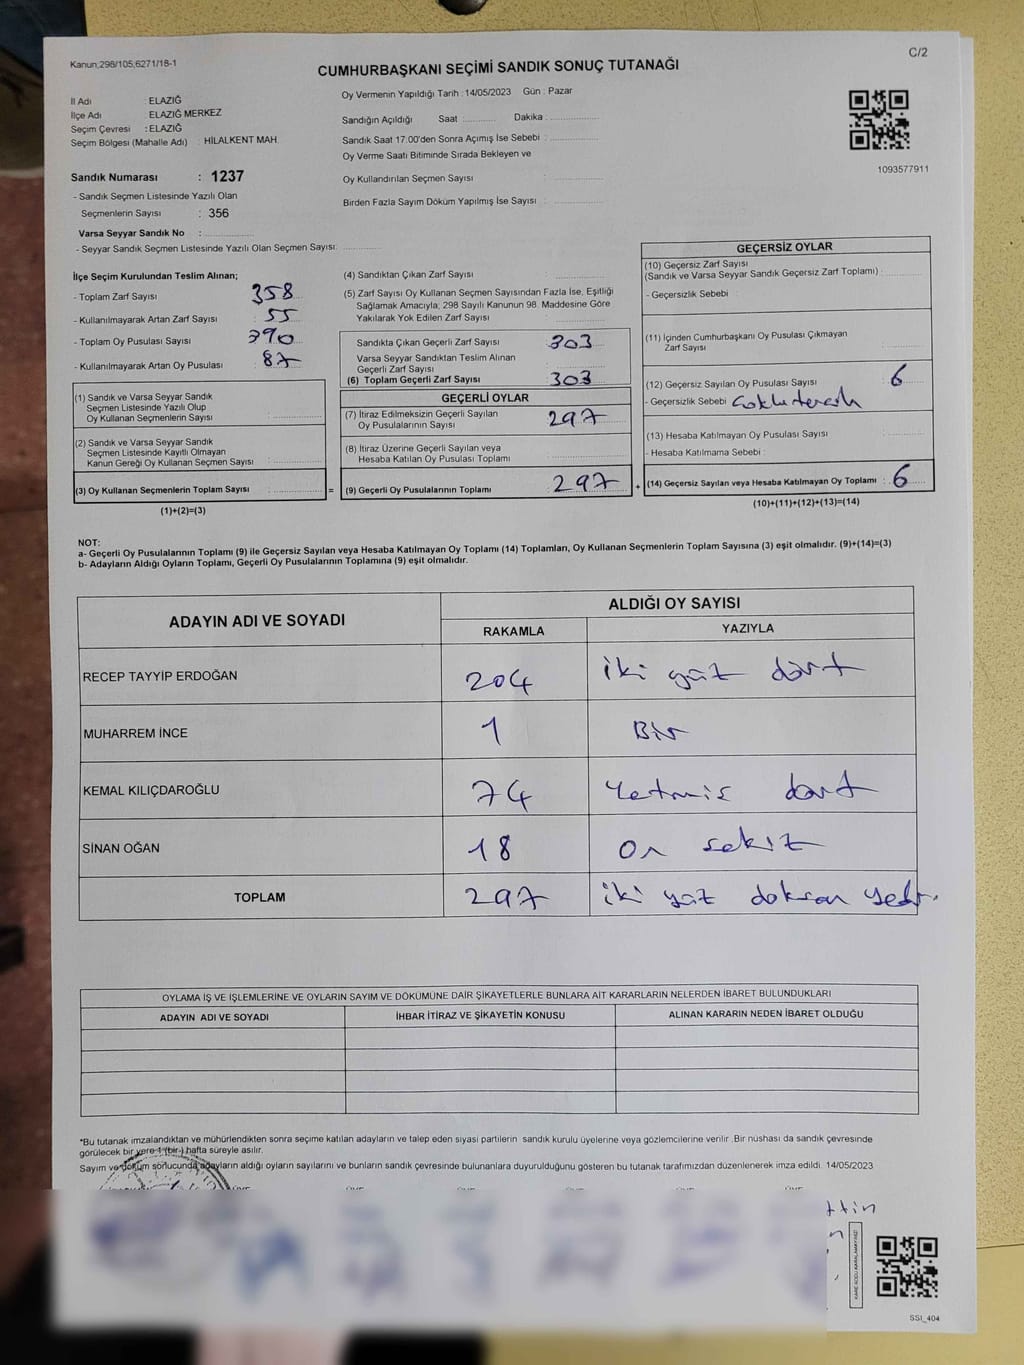 C/2
Kanun;298/105,6271/18-1
CUMHURBAŞKANI SEÇİMİ SANDIK SONUÇ TUTANAĞI
İl Adı : ELAZIĞ
İlçe Adı : ELAZIĞ MERKEZ
Seçim Çevresi : ELAZIĞ
Seçim Bölgesi (Mahalle Adı) : HİLALKENT MAH.
Sandık Numarası : 1237
- Sandık Seçmen Listesinde Yazılı Olan
Seçmenlerin Sayısı : 356
Varsa Seyyar Sandık No :
- Seyyar Sandık Seçmen Listesinde Yazılı Olan Seçmen Sayısı:
Oy Vermenin Yapıldığı Tarih : 14/05/2023 Gün : Pazar
Sandığın Açıldığı Saat : Dakika :
Sandık Saat 17:00'den Sonra Açımış İse Sebebi :
Oy Verme Saati Bitiminde Sırada Bekleyen ve
Oy Kullandırılan Seçmen Sayısı :
Birden Fazla Sayım Döküm Yapılmış İse Sayısı :
1093577911
İlçe Seçim Kurulundan Teslim Alınan;
- Toplam Zarf Sayısı : 358
- Kullanılmayarak Artan Zarf Sayısı : 55
- Toplam Oy Pusulası Sayısı : 390
- Kullanılmayarak Artan Oy Pusulası : 87
(1) Sandık ve Varsa Seyyar Sandık
Seçmen Listesinde Yazılı Olup
Oy Kullanan Seçmenlerin Sayısı :
(2) Sandık ve Varsa Seyyar Sandık
Seçmen Listesinde Kayıtlı Olmayan
Kanun Gereği Oy Kullanan Seçmen Sayısı :
(3) Oy Kullanan Seçmenlerin Toplam Sayısı : =
(1)+(2)=(3)
(4) Sandıktan Çıkan Zarf Sayısı :
(5) Zarf Sayısı Oy Kullanan Seçmen Sayısından Fazla İse, Eşitliği
Sağlamak Amacıyla, 298 Sayılı Kanunun 98. Maddesine Göre
Yakılarak Yok Edilen Zarf Sayısı :
Sandıkta Çıkan Geçerli Zarf Sayısı : 303
Varsa Seyyar Sandıktan Teslim Alınan
Geçerli Zarf Sayısı :
(6) Toplam Geçerli Zarf Sayısı : 303
GEÇERLİ OYLAR
(7) İtiraz Edilmeksizin Geçerli Sayılan
Oy Pusulalarının Sayısı : 297
(8) İtiraz Üzerine Geçerli Sayılan veya
Hesaba Katılan Oy Pusulası Toplamı :
(9) Geçerli Oy Pusulalarının Toplamı : 297 +
GEÇERSİZ OYLAR
(10) Geçersiz Zarf Sayısı
(Sandık ve Varsa Seyyar Sandık Geçersiz Zarf Toplamı) :
- Geçersizlik Sebebi :
(11) İçinden Cumhurbaşkanı Oy Pusulası Çıkmayan
Zarf Sayısı :
(12) Geçersiz Sayılan Oy Pusulası Sayısı : 6
- Geçersizlik Sebebi :
(13) Hesaba Katılmayan Oy Pusulası Sayısı :
- Hesaba Katılmama Sebebi :
(14) Geçersiz Sayılan veya Hesaba Katılmayan Oy Toplamı : 6
(10)+(11)+(12)+(13)=(14)
NOT:
a- Geçerli Oy Pusulalarının Toplamı (9) ile Geçersiz Sayılan veya Hesaba Katılmayan Oy Toplamı (14) Toplamları, Oy Kullanan Seçmenlerin Toplam Sayısına (3) eşit olmalıdır. (9)+(14)=(3)
b- Adayların Aldığı Oyların Toplamı, Geçerli Oy Pusulalarının Toplamına (9) eşit olmalıdır.
ADAYIN ADI VE SOYADI
ALDIĞI OY SAYISI
RAKAMLA YAZIYLA
RECEP TAYYİP ERDOĞAN 204 iki yüz dört
MUHARREM İNCE 1 Bir
KEMAL KILIÇDAROĞLU 74 Yetmiş dört
SİNAN OĞAN 18 On sekiz
TOPLAM 297 iki yüz doksan yedi.
OYLAMA İŞ VE İŞLEMLERİNE VE OYLARIN SAYIM VE DÖKÜMÜNE DAİR ŞİKAYETLERLE BUNLARA AİT KARARLARIN NELERDEN İBARET BULUNDUKLARI
ADAYIN ADI VE SOYADI İHBAR İTİRAZ VE ŞİKAYETİN KONUSU ALINAN KARARIN NEDEN İBARET OLDUĞU
*Bu tutanak imzalandıktan ve mühürlendikten sonra seçime katılan adayların ve talep eden siyasi partilerin sandık kurulu üyelerine veya gözlemcilerine verilir .Bir nüshası da sandık çevresinde
görülecek bir yere 1 (bir-) hafta süreyle asılır.
Sayım ve döküm sonucunda adayların aldığı oyların sayılarını ve bunların sandık çevresinde bulunanlara duyurulduğunu gösteren bu tutanak tarafımızdan düzenlenerek imza edildi. 14/05/2023
SSİ_404